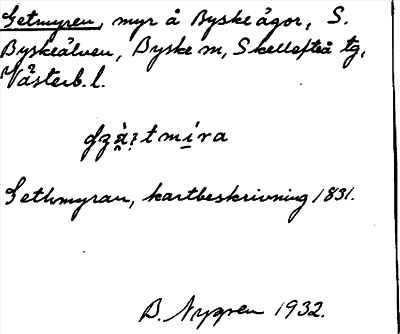 Getmyren, myr å Byske ägor, S.
Byskeälven, Byske sn, Skellefteå tg,
Västerb. l.
Gethmyran, kartbeskrivning 1831.
B. Nygren 1932.